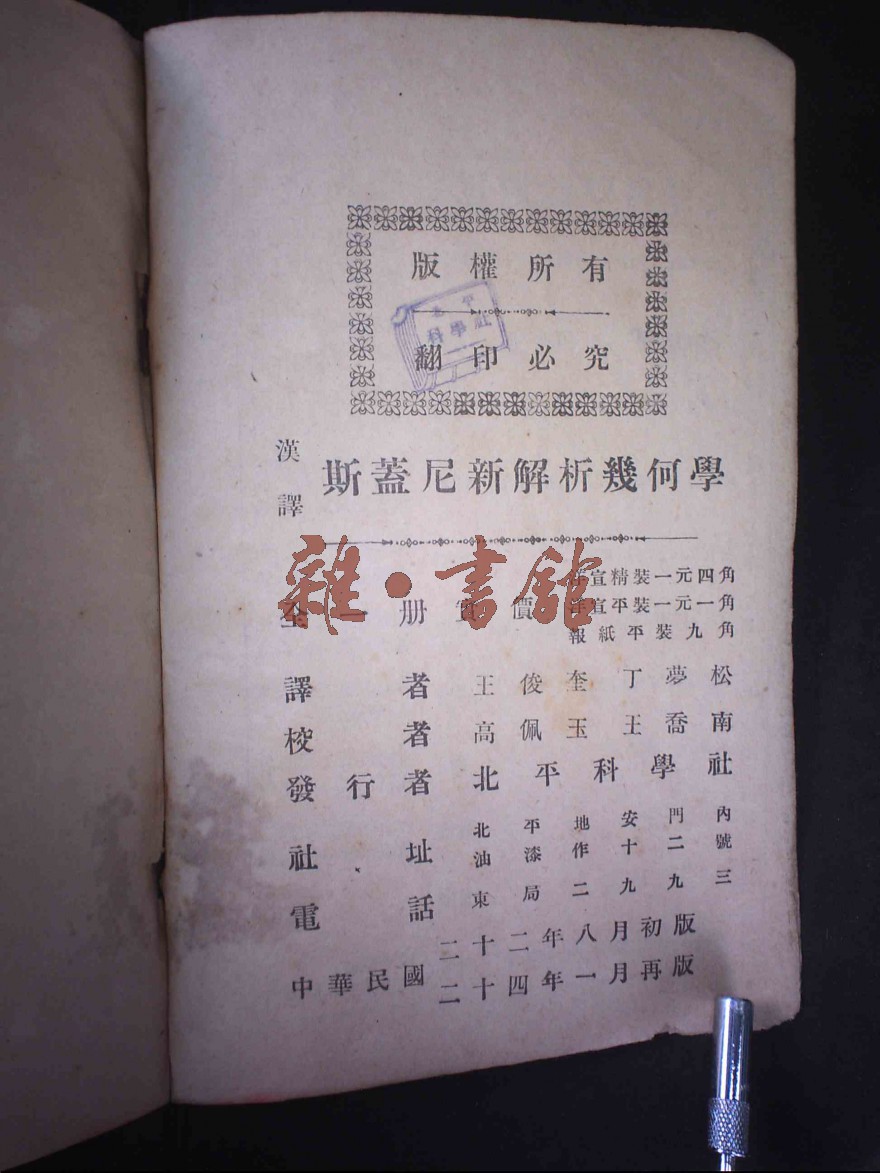 版權所有
北平
科學社
翻印必究
漢譯
斯蓋尼新解析幾何學
雜·書館
全一册實價
洋宣精裝一元四角
洋宣平裝一元一角
報紙平裝九角
譯者 王俊奎 丁夢松
校者 高佩玉 王喬南
發行者 北平科學社
社址 北平地安門內
油漆作十二號
電話 東局二九九三
中華民國
二十二年八月初版
二十四年一月再版